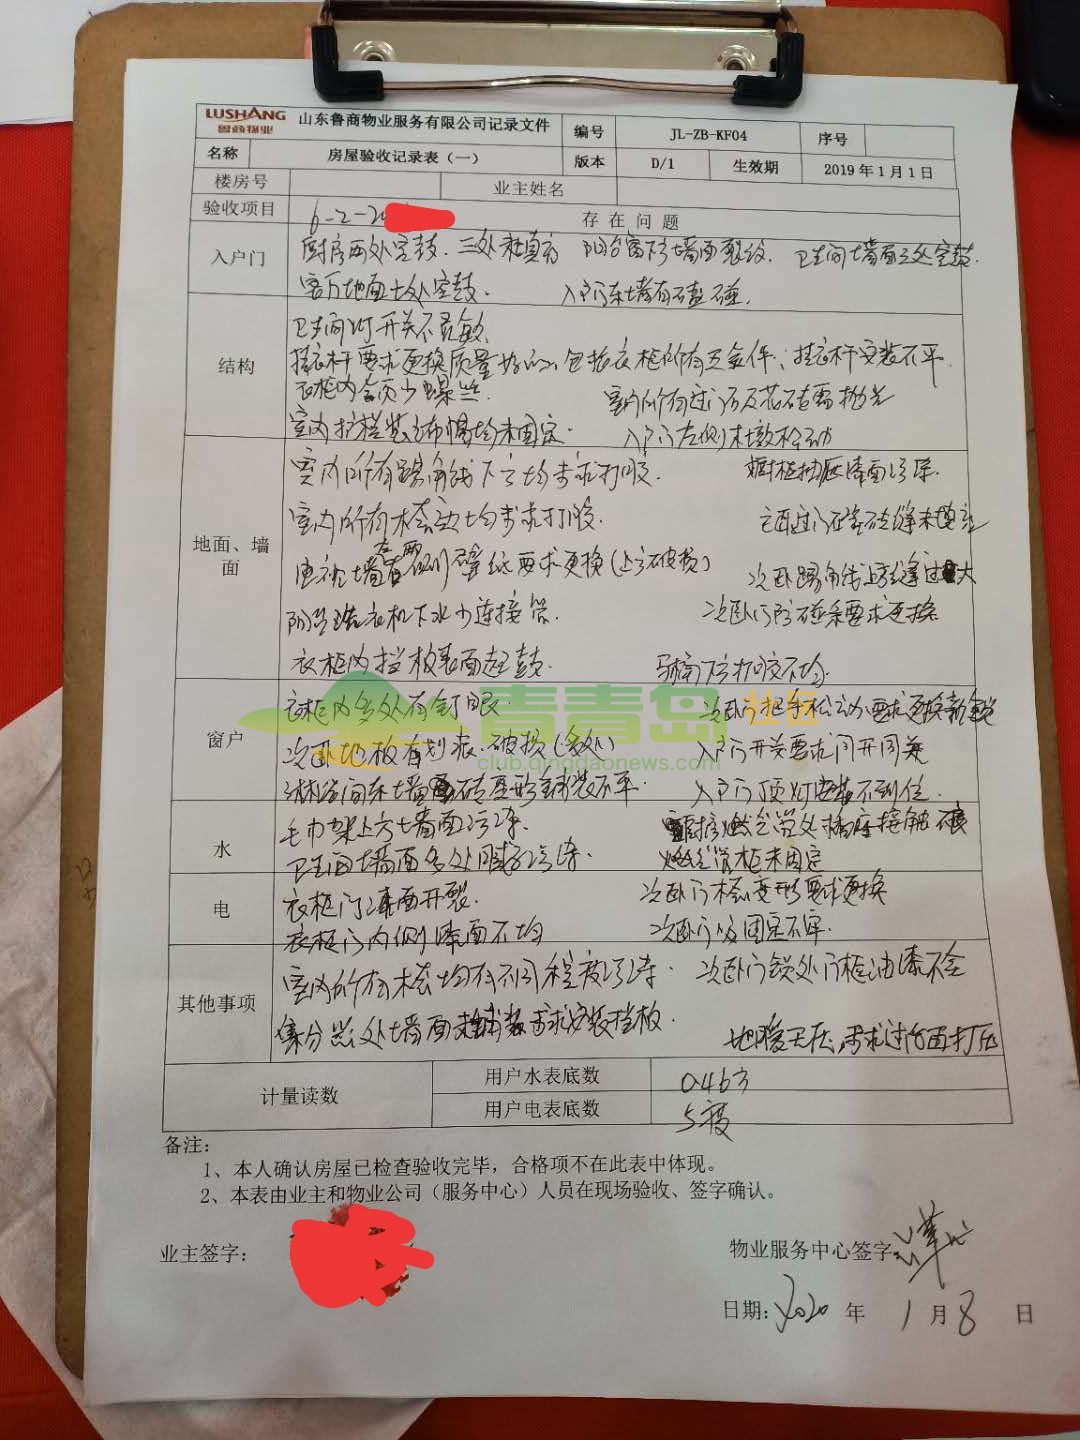 LUSHANG 鲁商物业 山东鲁商物业服务有限公司记录文件 编号 JL-ZB-KF04 序号
名称 房屋验收记录表（一） 版本 D/1 生效期 2019年1月1日
楼房号 业主姓名
验收项目 6-2-20 存在问题
入户门 厨房两处空鼓. 三处 阳台窗下方墙面裂纹. 卫生间墙面三处空鼓.
客厅地面七处空鼓. 入户门东墙有磕碰.
卫生间灯开关不灵敏
结构 挂衣杆要求更换质量好的, 包括衣柜所有五金件; 挂衣杆安装不平
衣柜内合页少螺丝. 室内所有过门石及花石需抛光
室内护栏装饰帽均未固定. 入户门左侧木墩松动
室内所有踢角线下方均要求打胶. 橱柜抽屉漆面污染.
室内所有木套边均要求打胶. 过门石瓷砖缝未填充
地面、墙面 电视墙左两侧壁纸要求更换(上方破损) 次卧踢角线上方缝过大
阳台洗衣机下水少连接管. 次卧门防碰条要求更换
衣柜内挡板表面起鼓. 下方打胶不均.
窗户 衣柜内多处有钉眼. 次卧门把手松动要求更换新锁
次卧地板有划痕.破损(多处) 入户门开关要求同开同关
淋浴间东墙砖 铺装不平. 入户门顶灯 不到位.
水 毛巾架上方墙面污染. 燃气管处插座接触
卫生间墙面多处腻子污染. 燃气管柜未固定
电 衣柜门漆面开裂. 次卧门套变形要求更换
衣柜门内侧漆面不均 次卧门吸固定不牢.
其他事项 室内所有木套均有不同程度污染. 次卧门锁处门框油漆不全
集分器处墙面 要求安装挡板. 地暖无压,要求过台面打压
计量读数 用户水表底数 0.463
用户电表底数 5度
备注：
1、本人确认房屋已检查验收完毕，合格项不在此表中体现。
2、本表由业主和物业公司（服务中心）人员在现场验收、签字确认。
业主签字： 物业服务中心签字
日期: 2020 年 1 月 8 日
青青岛社区
club.qingdaonews.com